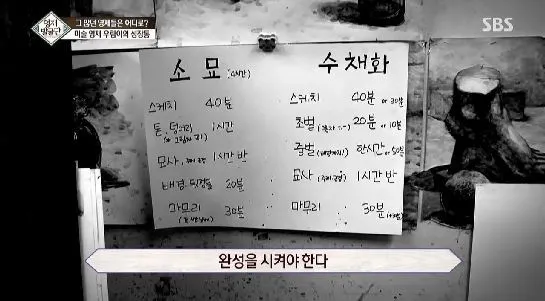 영재발굴단
그 많던 영재들은 어디로?
미술 영재 우림이의 성장통
SBS
소묘 (4시간)
스케치 40분
톤, 덩어리 1시간
묘사 1시간 반
배경 뒷정돈 20분
마무리 30분
수채화
스케치 40분 or 30분
초벌 20분 or 10분
중벌 한시간 or 50분
묘사 1시간 반
마무리 30분
완성을 시켜야 한다